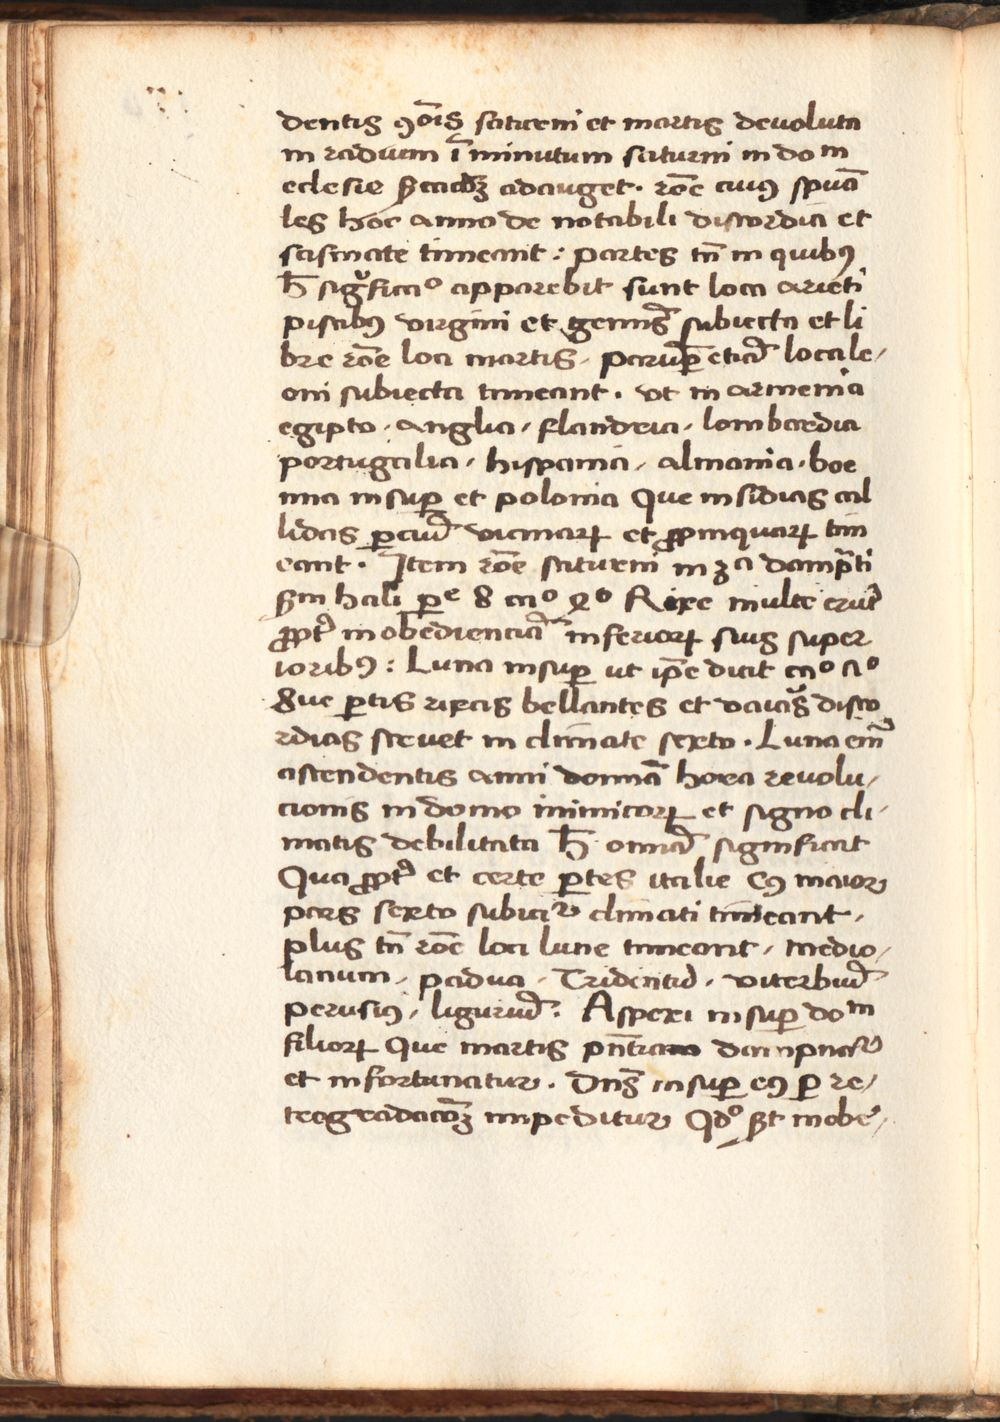 dentis ꝯōis saturni et martis devoluta
in raduem ī minutum saturni in dom
eclesie adauget. rōe cuiꝰ spūa
les hōc anno de notabili discordia et
scismate timeant : partes tn̄ in quibꝰ
h̄ sig͛ficaº apparebit sunt loca arieti
piscibꝰ virgini et subiecta et li
bre rōe loci martis . parūꝑ etiā locale,
oni subiecta timeant . ut in armenia
egipto . anglia , flandria , lombardia
portugalia , hispania , almania . boe
mia insuꝑ et polonia Que insidias cal
lidas vicinaꝝ et ꝓpinquaꝝ tim
eant . Item rōe saturni in dampn̄ti
sm̄ hali ꝑe 8 Rixe multe erūt
ꝓpt̄ inobedienciā inferioꝝ suis super
ioribꝰ : Luna insuꝑ ut ip̄e dicit
8ue ꝑtis rixas bellantes et disco
rdias in climate sexto . Luna em̄
ascendentis anni domīa hora revolu,
cionis in domo inimicoꝝ et signo cli,
matis debilitata h̄ omīa significat
Qua ꝓpt̄ et certe ꝑtes italie Cꝰ maior
pars sexto subicit᷑ climati timeant .
plus tn̄ rōe loci lune timeant , medio,
lanum , padua . Tridentū . viterbiū
perusiꝰ , liguriū . Aspexi insuꝑ dom
filioꝝ Que martis pn̄tia dampnat᷑
et infortunatur . Dn̄s insuꝑ eꝰ ꝑ re,
trogradacōꝫ impeditur Qdº inobe,